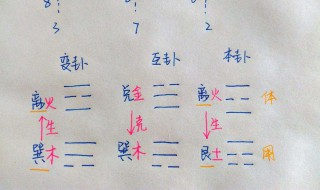 8? ? ?
3 7 2
变卦 互卦 本卦
离火 兑金 离火 体
↑生 ↓克 ↓生
巽木 巽木 艮土 用